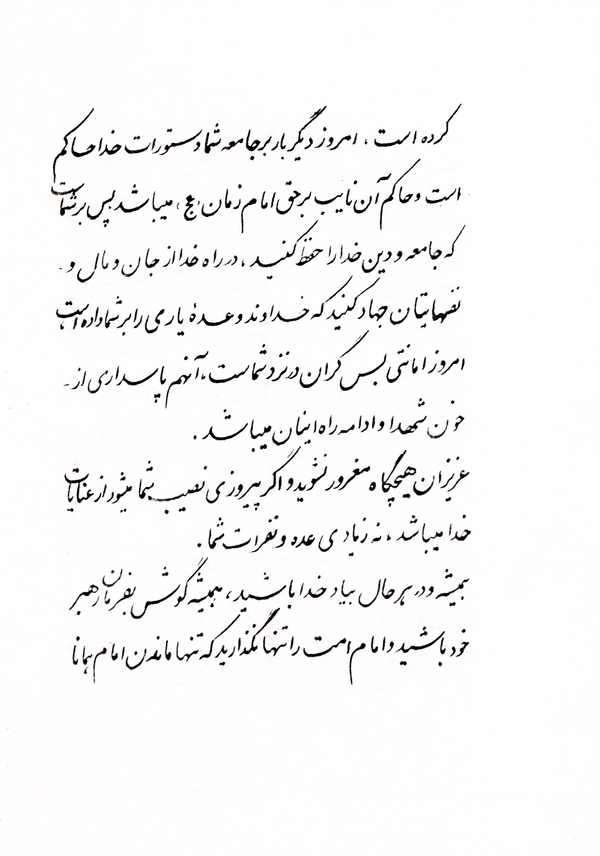 کرده است ، امروز دیگر بار بر جامعه شما دستورات خدا حاکم
است و حاکم آن نایب بر حق امام زمان (عج) میباشد پس بر شماست
که جامعه و دین خدا را حفظ کنید ، در راه خدا از جان و مال و
نفسهایتان جهاد کنید که خداوند وعدهٔ یاری را بر شما داده است
امروز امانتی بس گران در نزد شماست ، آنهم پاسداری از
خون شهدا و ادامه راه اینان میباشد .
عزیزان هیچگاه مغرور نشوید و اگر پیروزی نصیب شما میشود از عنایات
خدا میباشد ، نه زیادی عده و نفرات شما .
همیشه و در هر حال بیاد خدا باشید ، همیشه گوش بفرمان رهبر
خود باشید و امام امت را تنها نگذارید که تنها ماندن امام همانا